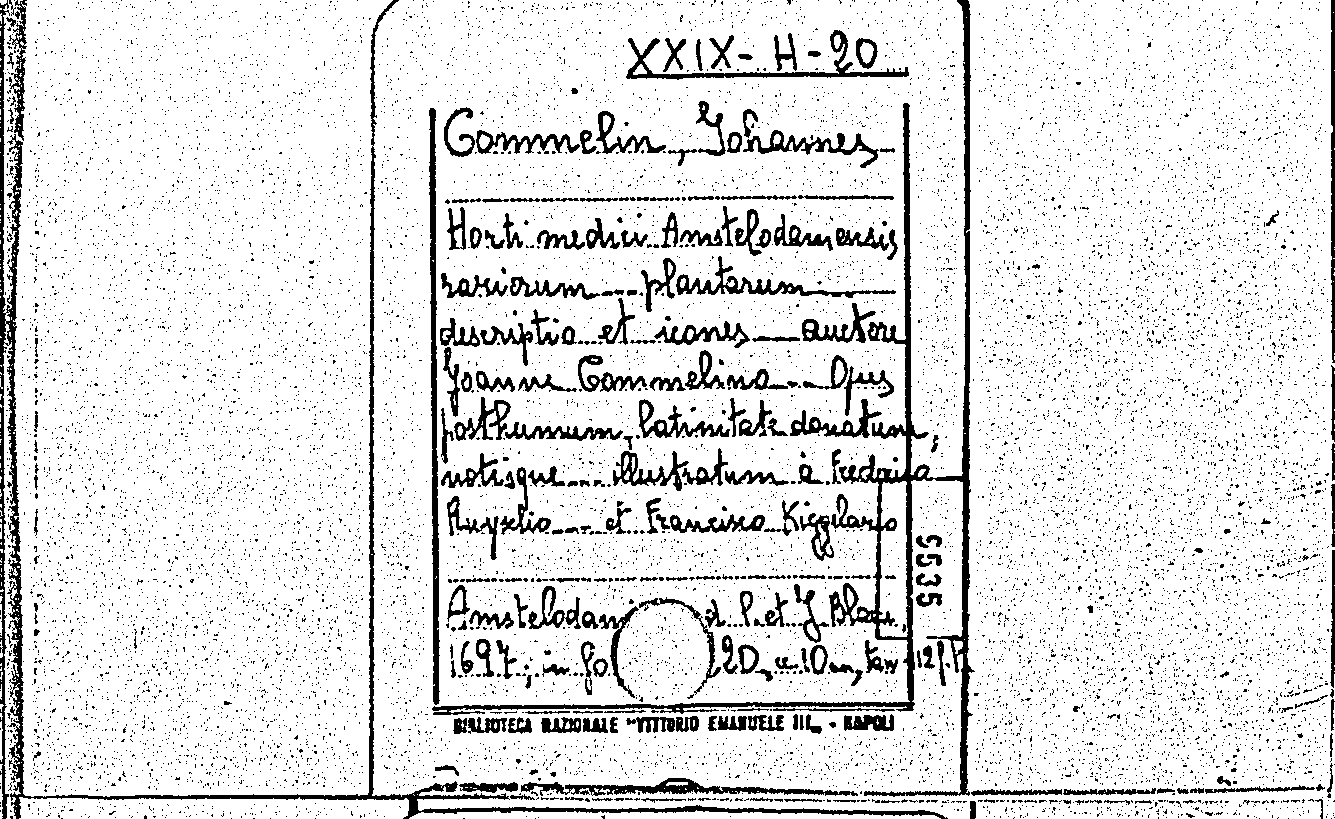 XXIX-H-20
Commelin, Johannes
Horti medici Amstelodamensis
rariorum --- plantarum
descriptio et icones --- auctore
Joanne Commelino --- Opus
posthumum, latinitate donatum,
notisque --- illustratum à Frederico
Ruyschio --- et Francisco Kiggelario
Amstelodami P. et J. Blaeu,
1697; in fo 220, c. 10 nn, tav 112 f.t.
5535
BIBLIOTECA NAZIONALE "VITTORIO EMANUELE III„ - NAPOLI